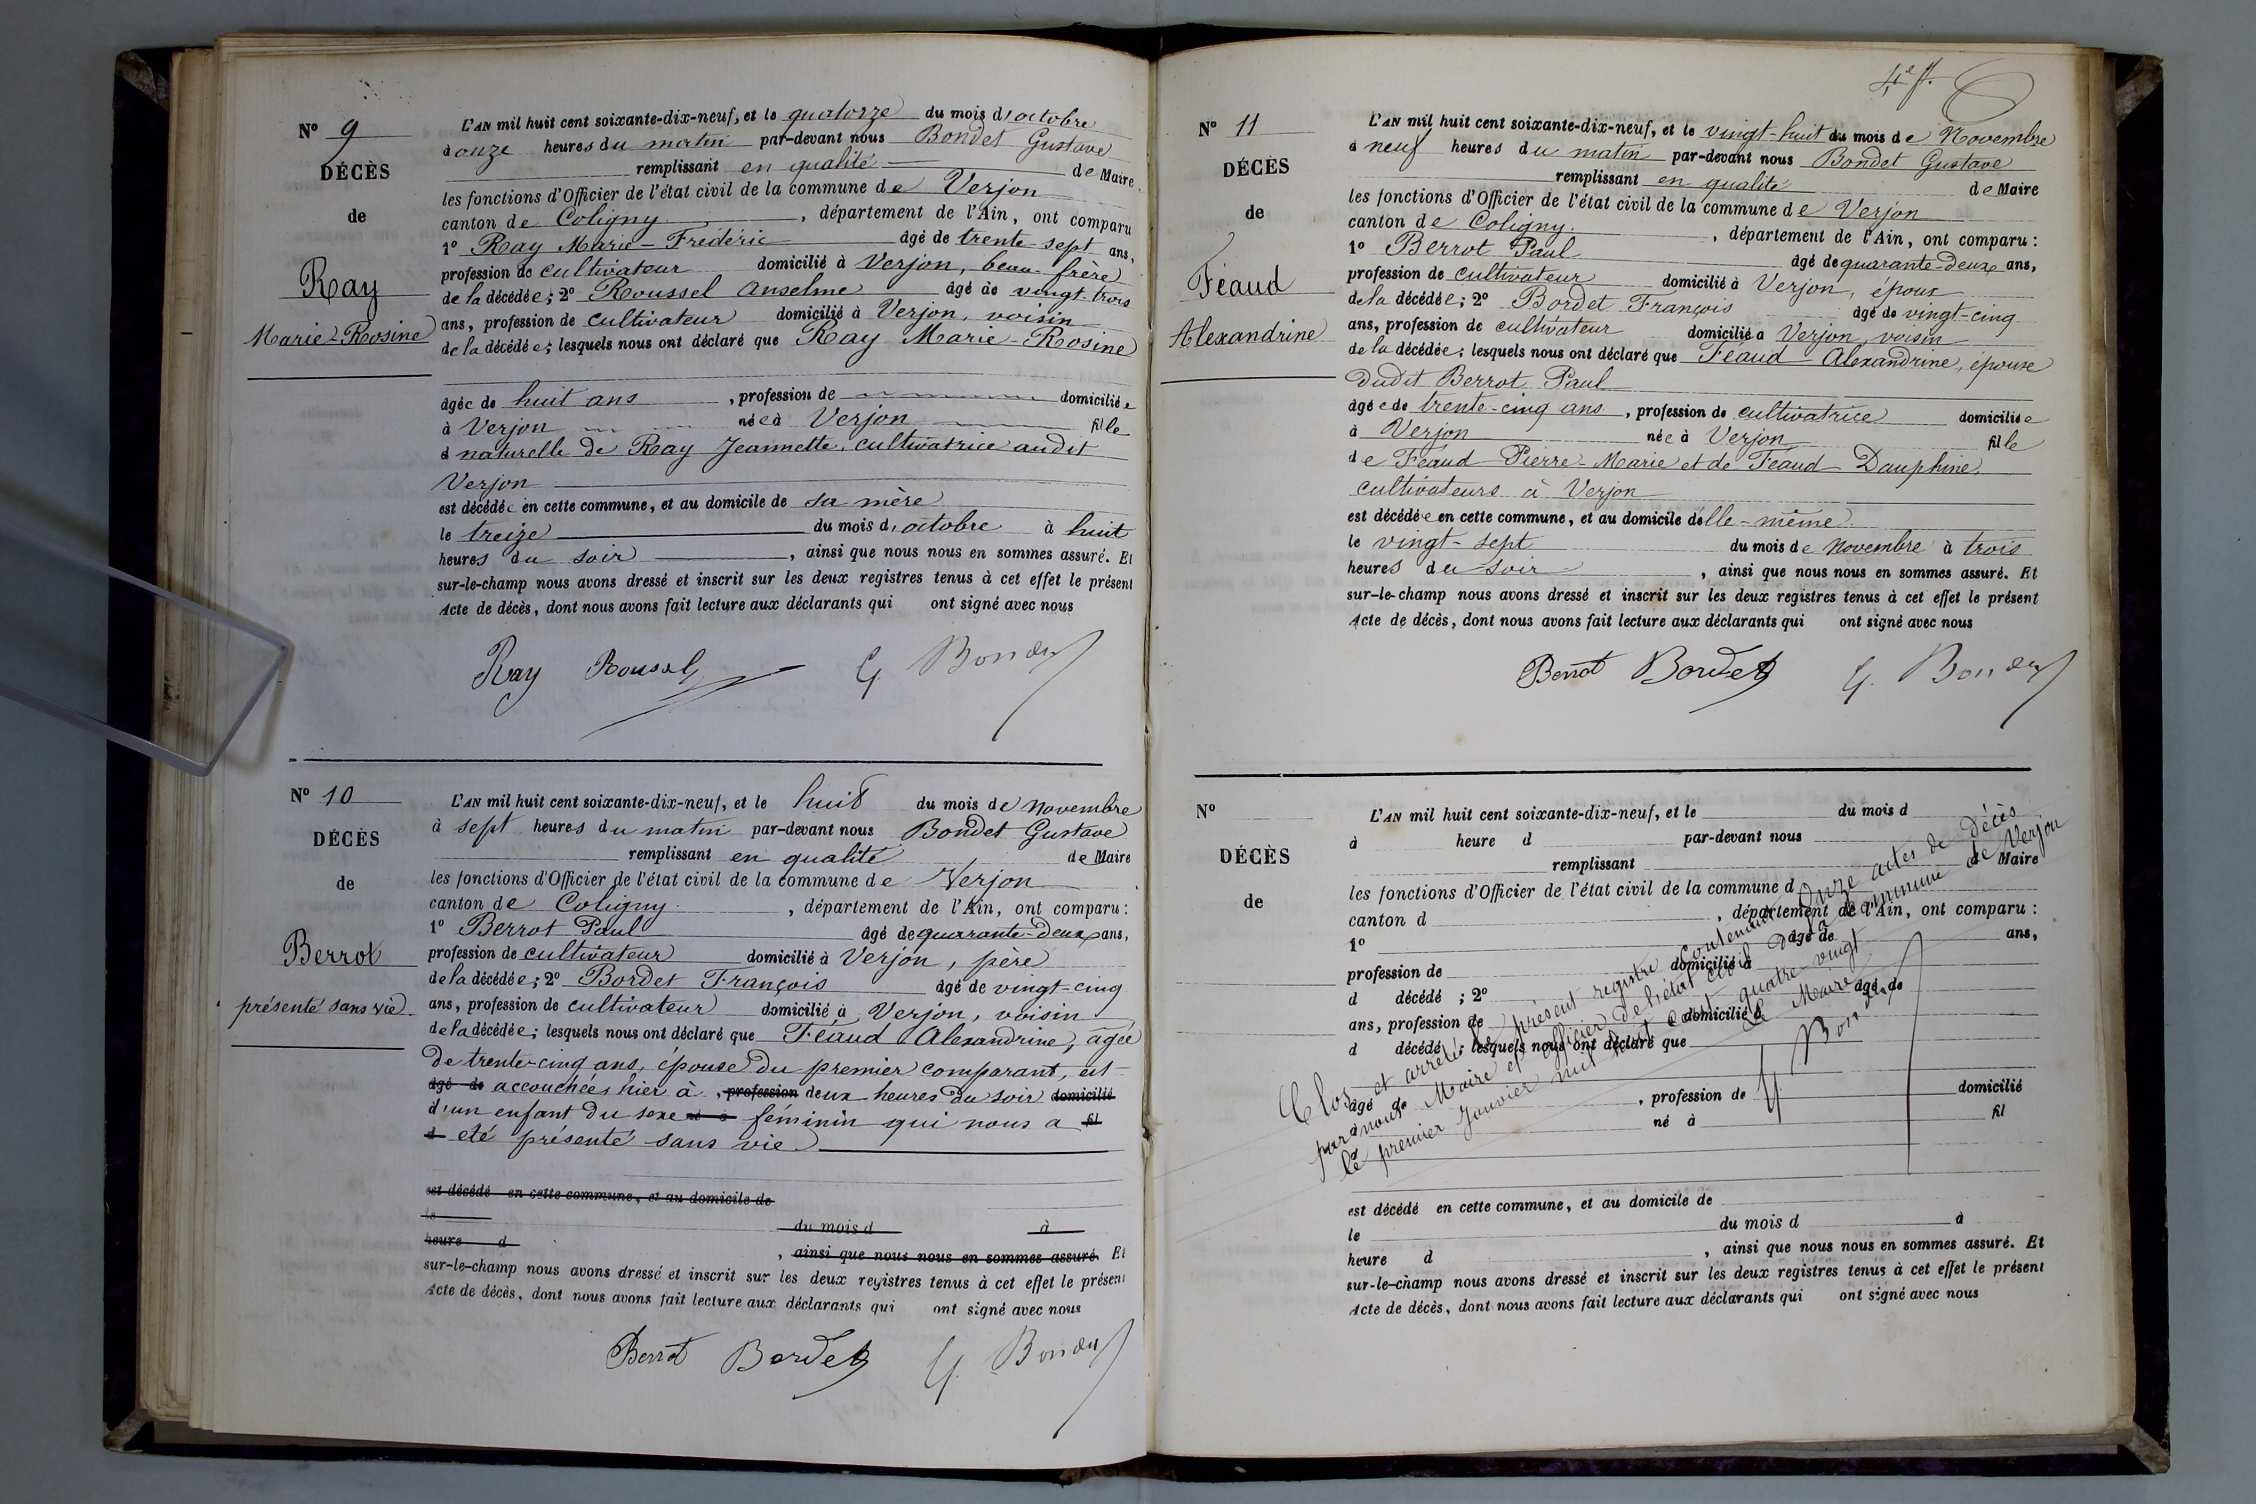 N° 9
DÉCÈS
de
Ray
Marie-Rosine
L'AN mil huit cent soixante-dix-neuf, et le quatorze du mois d'octobre
à onze heures du matin par-devant nous Bondet Gustave
remplissant en qualité de Maire
les fonctions d'Officier de l'état civil de la commune de Verjon
canton de Coligny, département de l'Ain, ont comparu
1° Ray Marie-Frédéric âgé de trente-sept ans,
profession de cultivateur domicilié à Verjon, beau-frère
de la décédée; 2° Roussel Anselme âgé de vingt-trois
ans, profession de cultivateur domicilié à Verjon, voisin
de la décédée; lesquels nous ont déclaré que Ray Marie-Rosine
âgée de huit ans, profession de domiciliée
à Verjon née à Verjon fille
d naturelle de Ray Jeannette, cultivatrice audit
Verjon
est décédée en cette commune, et au domicile de sa mère
le treize du mois d'octobre à huit
heures du soir, ainsi que nous nous en sommes assuré. Et
sur-le-champ nous avons dressé et inscrit sur les deux registres tenus à cet effet le présent
Acte de décès, dont nous avons fait lecture aux déclarants qui ont signé avec nous
Ray Roussel G Bondet
N° 10
DÉCÈS
de
Berrot
présenté sans vie
L'AN mil huit cent soixante-dix-neuf, et le huit du mois de novembre
à sept heures du matin par-devant nous Bondet Gustave
remplissant en qualité de Maire
les fonctions d'Officier de l'état civil de la commune de Verjon
canton de Coligny, département de l'Ain, ont comparu :
1° Berrot Paul âgé de quarante-deux ans,
profession de cultivateur domicilié à Verjon, père
de la décédée; 2° Bordet François âgé de vingt-cinq
ans, profession de cultivateur domicilié à Verjon, voisin
de la décédée; lesquels nous ont déclaré que Féaud Alexandrine, âgée
de trente-cinq ans, épouse du premier comparant, est
âgé de accouchée hier à , profession deux heures du soir domicilié
d'un enfant du sexe né à féminin qui nous a fil
d été présenté sans vie
est décédé en cette commune, et au domicile de
le du mois d à
heure d , ainsi que nous nous en sommes assuré. Et
sur-le-champ nous avons dressé et inscrit sur les deux registres tenus à cet effet le présent
Acte de décès, dont nous avons fait lecture aux déclarants qui ont signé avec nous
Berrot Bordet G. Bondet
N° 11
DÉCÈS
de
Féaud
Alexandrine
L'AN mil huit cent soixante-dix-neuf, et le vingt-huit du mois de Novembre
à neuf heures du matin par-devant nous Bondet Gustave
remplissant en qualité de Maire
les fonctions d'Officier de l'état civil de la commune de Verjon
canton de Coligny, département de l'Ain, ont comparu :
1° Berrot Paul âgé de quarante-deux ans,
profession de cultivateur domicilié à Verjon, époux
de la décédée; 2° Bordet François âgé de vingt-cinq
ans, profession de cultivateur domicilié à Verjon, voisin
de la décédée; lesquels nous ont déclaré que Féaud Alexandrine, épouse
dudit Berrot Paul
âgée de trente-cinq ans, profession de cultivatrice domiciliée
à Verjon née à Verjon fille
de Féaud Pierre-Marie et de Féaud Dauphine,
cultivateurs à Verjon
est décédée en cette commune, et au domicile d'elle-même
le vingt-sept du mois de novembre à trois
heures du soir, ainsi que nous nous en sommes assuré. Et
sur-le-champ nous avons dressé et inscrit sur les deux registres tenus à cet effet le présent
Acte de décès, dont nous avons fait lecture aux déclarants qui ont signé avec nous
Berrot Bordet G. Bondet
N°
DÉCÈS
de
L'AN mil huit cent soixante-dix-neuf, et le du mois d
à heure d par-devant nous
remplissant d Maire
les fonctions d'Officier de l'état civil de la commune d
canton d , département de l'Ain, ont comparu :
1° âgé de ans,
profession de domicilié à
d décédé ; 2° âgé de
ans, profession de domicilié à
d décédé ; lesquels nous ont déclaré que
âgé de , profession de domicilié
à né à fil
d
est décédé en cette commune, et au domicile de
le du mois d à
heure d , ainsi que nous nous en sommes assuré. Et
sur-le-champ nous avons dressé et inscrit sur les deux registres tenus à cet effet le présent
Acte de décès, dont nous avons fait lecture aux déclarants qui ont signé avec nous
Clos et arrêté le présent registre contenant onze actes de décès
par nous Maire et officier de l'état civil de la commune de Verjon
le premier Janvier mil huit cent quatre-vingt
Le Maire
G. Bondet